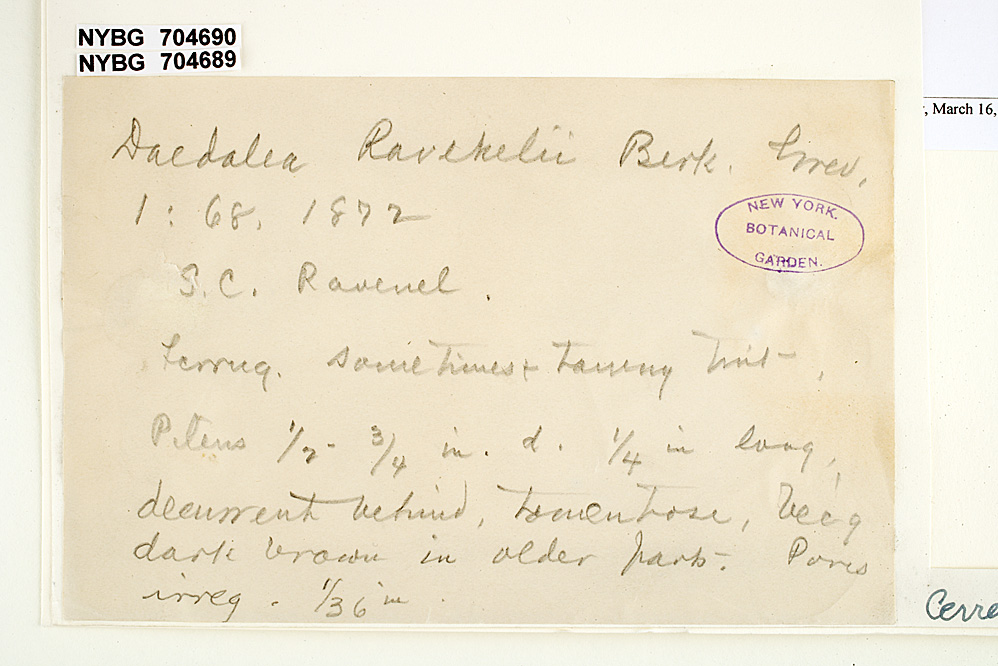 NYBG 704690
NYBG 704689
, March 16,
Daedalea Ravenelii Berk. Grev.
1 : 68, 1872
NEW YORK.
BOTANICAL
GARDEN.
S.C. Ravenel.
Ferrug. sometimes tawny tint,
Pileus 1/2 - 3/4 in. d. 1/4 in long,
decurrent behind, tomentose, bec'g
dark brown in older parts. Pores
irreg. 1/36 in.
Cerre